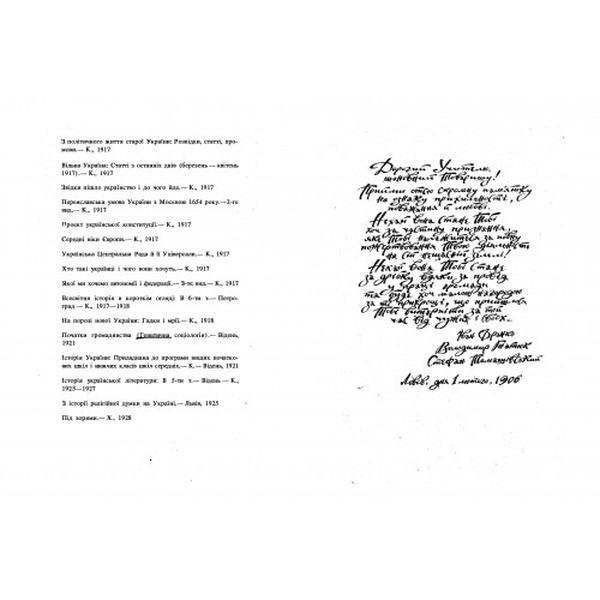 З політичного життя старої України: Розвідки, статті, про-
мови.— К., 1917
Вільна Україна: Статті з останніх днів (березень — квітень
1917).— К., 1917
Звідки пішло українство і до чого йде.— К., 1917
Переяславська умова України з Москвою 1654 року.—2-ге
вид.— К., 1917
Проєкт української конституції.— К., 1917
Середні віки Європи.— К., 1917
Українська Центральна Рада й її Універсали.— К., 1917
Хто такі українці і чого вони хочуть.— К., 1917
Якої ми хочемо автономії і федерації.— 3-тє вид.— К., 1917
Всесвітня історія в короткім огляді: В 6-ти ч.— Петро-
град — К., 1917—1918
На порозі нової України: Гадки і мрії.— К., 1918
Початки громадянства (Генетична соціологія).— Відень,
1921
Історія України: Приладжена до програми вищих початко-
вих шкіл і нижчих класів шкіл середніх.— К.— Відень, 1921
Історія української літератури: В 5-ти т.— Відень — К.,
1923—1927
З історії релігійної думки на Україні.— Львів, 1925
Під зорями.— Х., 1928
Дорогий Учителю,
шановний Товаришу!
Прийми отсю скромну памятку
на ознаку прихильности,
поважання й любові.
Нехай вона стане Тобі
хоч за частину признання,
яке Тобі належить за повну
пожертвовання Твою діяльність
на сій нещасній землі!
Нехай вона Тобі стане
за дрібку вдяки за провід
у праці громади
та буде хоч малою нагородою
за ті прикрощі, що прийшлось
Тобі витерпіти за той
час від чужих і своїх.
Іван Франко
Володимир Гнатюк
Стефан Томашівський
Львів, дня 1 лютого, 1906